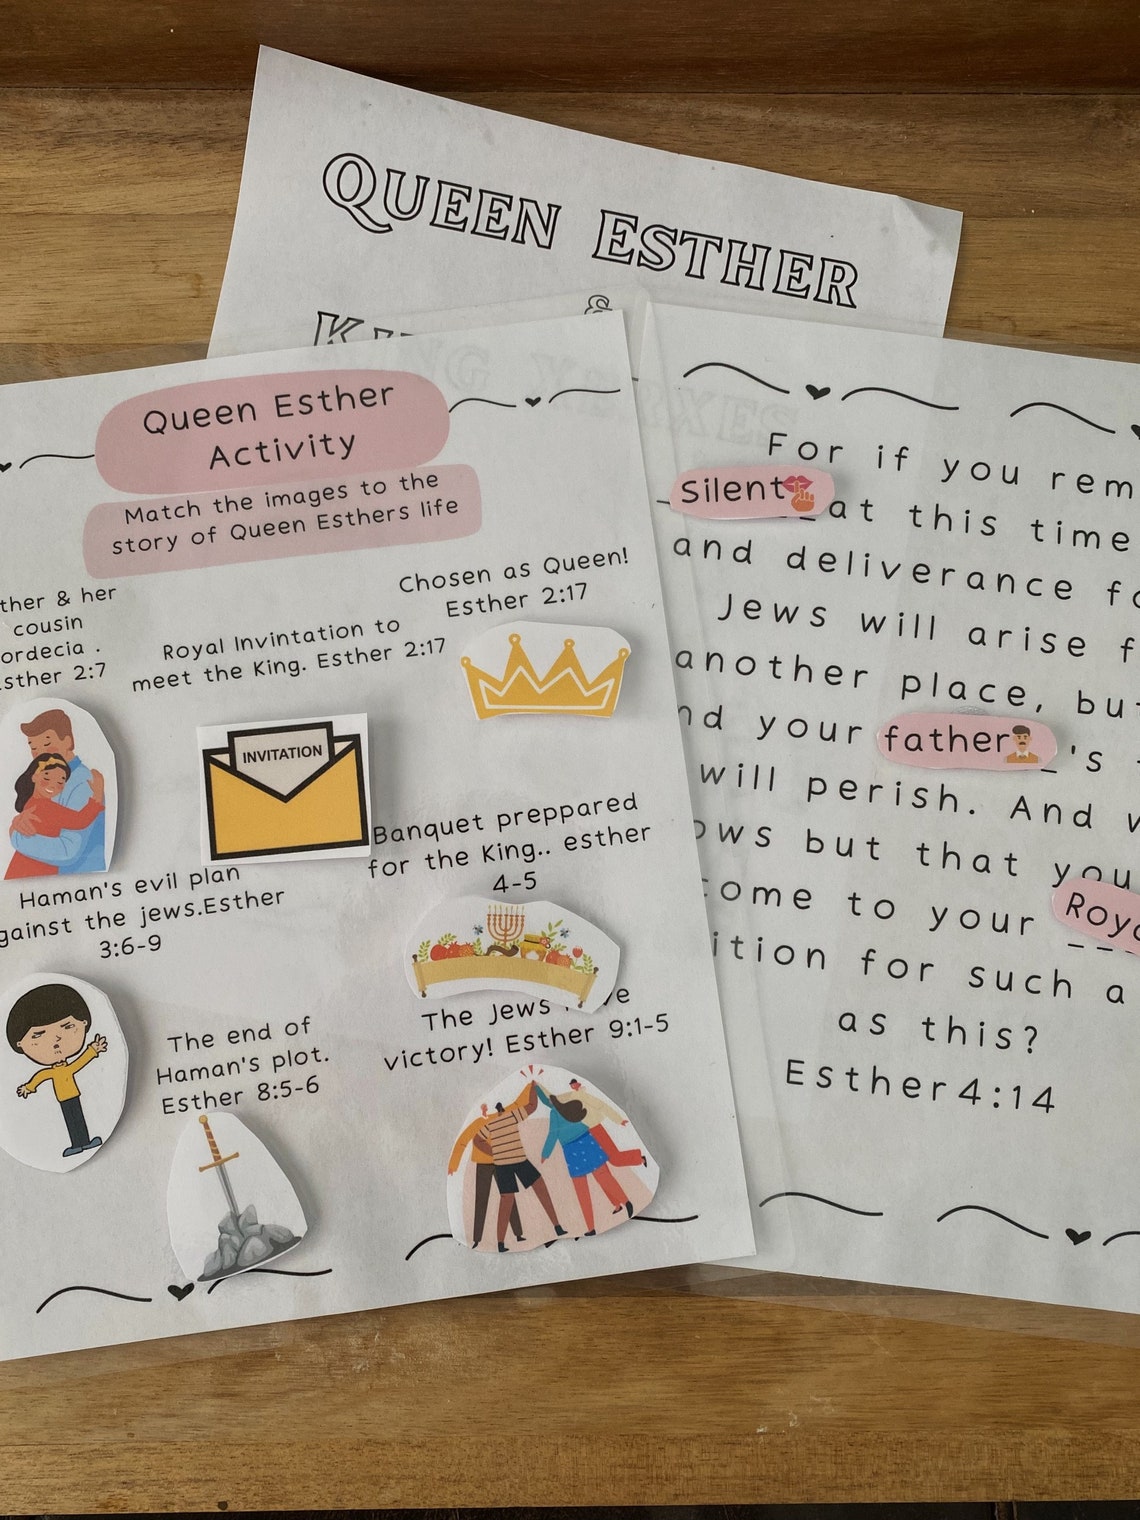 QUEEN ESTHER
&
KING XERXES
Queen Esther
Activity
Match the images to the
story of Queen Esthers life
ther & her
cousin
ordecia .
sther 2:7
Royal Invintation to
meet the King. Esther 2:17
Chosen as Queen!
Esther 2:17
INVITATION
Haman's evil plan
gainst the jews.Esther
3:6-9
Banquet preppared
for the King.. esther
4-5
The end of
Haman's plot.
Esther 8:5-6
The Jews
victory! Esther 9:1-5
For if you rem
Silent at this time
and deliverance fo
Jews will arise f
another place, but
nd your father's
will perish. And w
ows but that you
come to your Roya
ition for such a
as this?
Esther4:14